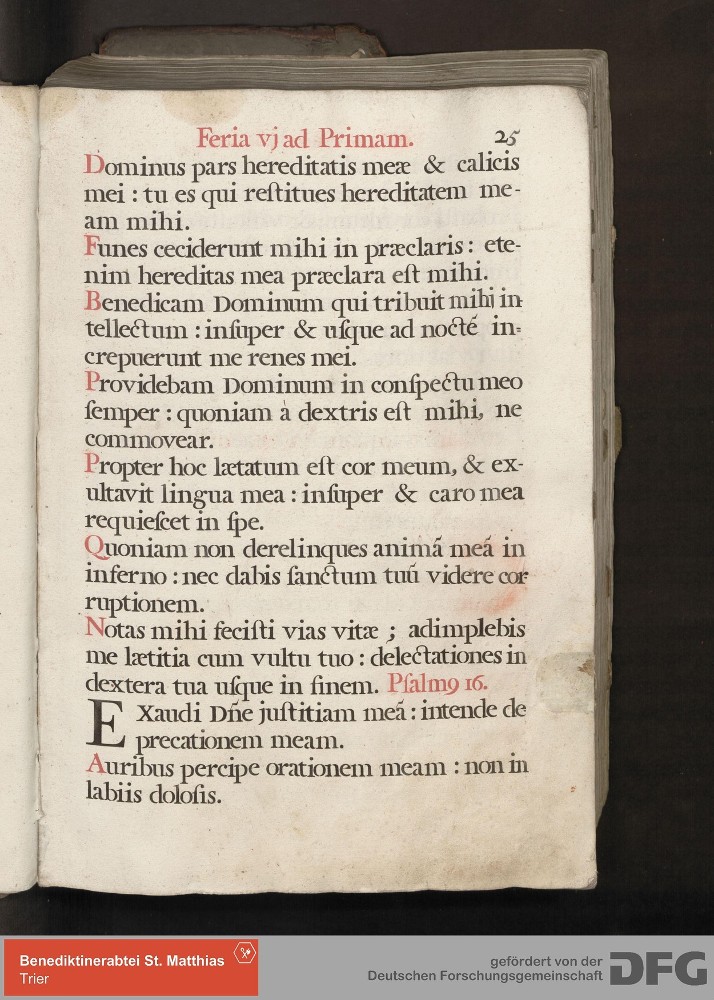 Feria vj ad Primam. 25
Dominus pars hereditatis meæ & calicis
mei : tu es qui reſtitues hereditatem me-
am mihi.
Funes ceciderunt mihi in præclaris : ete-
nim hereditas mea præclara eſt mihi.
Benedicam Dominum qui tribuit mihi in-
tellectum : inſuper & uſque ad nocté in=
crepuerunt me renes mei.
Providebam Dominum in conſpectu meo
ſemper : quoniam à dextris eſt mihi, ne
commovear.
Propter hoc lætatum eſt cor meum, & ex-
ultavit lingua mea : inſuper & caro mea
requieſcet in ſpe.
Quoniam non derelinques animã meã in
inferno : nec dabis ſanctum tuũ videre cor-
ruptionem.
Notas mihi feciſti vias vitæ ; adimplebis
me lætitia cum vultu tuo : delectationes in
dextera tua uſque in finem. Pſalmꝰ 16.
EXaudi Dñe juſtitiam meã : intende de
precationem meam.
Auribus percipe orationem meam : non in
labiis doloſis.
Benediktinerabtei St. Matthias
Trier
gefördert von der
Deutschen Forschungsgemeinschaft
DFG